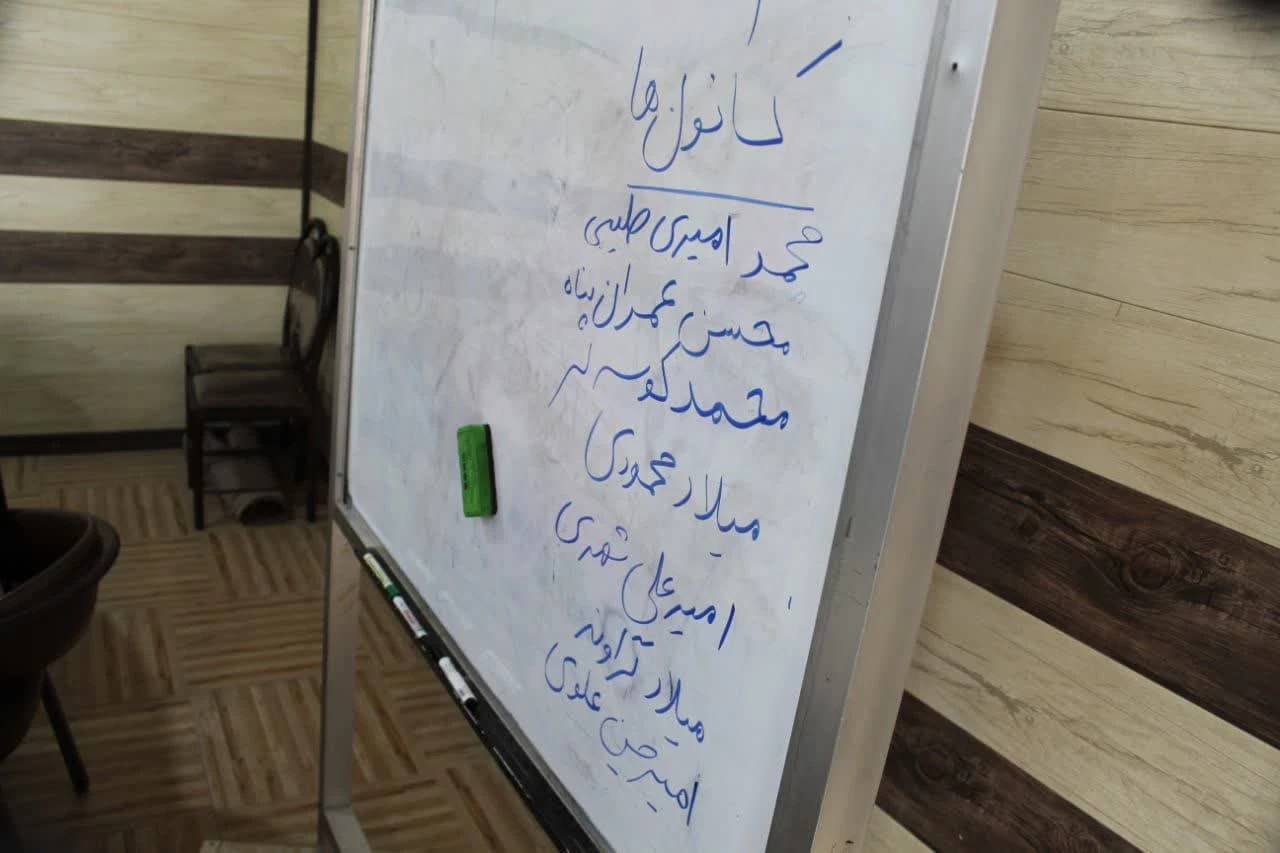 کانون ها
محمد امیری طیبی
محسن عمران پناه
محمد کوسه لر
میلاد محمودی
امیرعلی شهری
میلاد گراونه
امیرحسین علوی